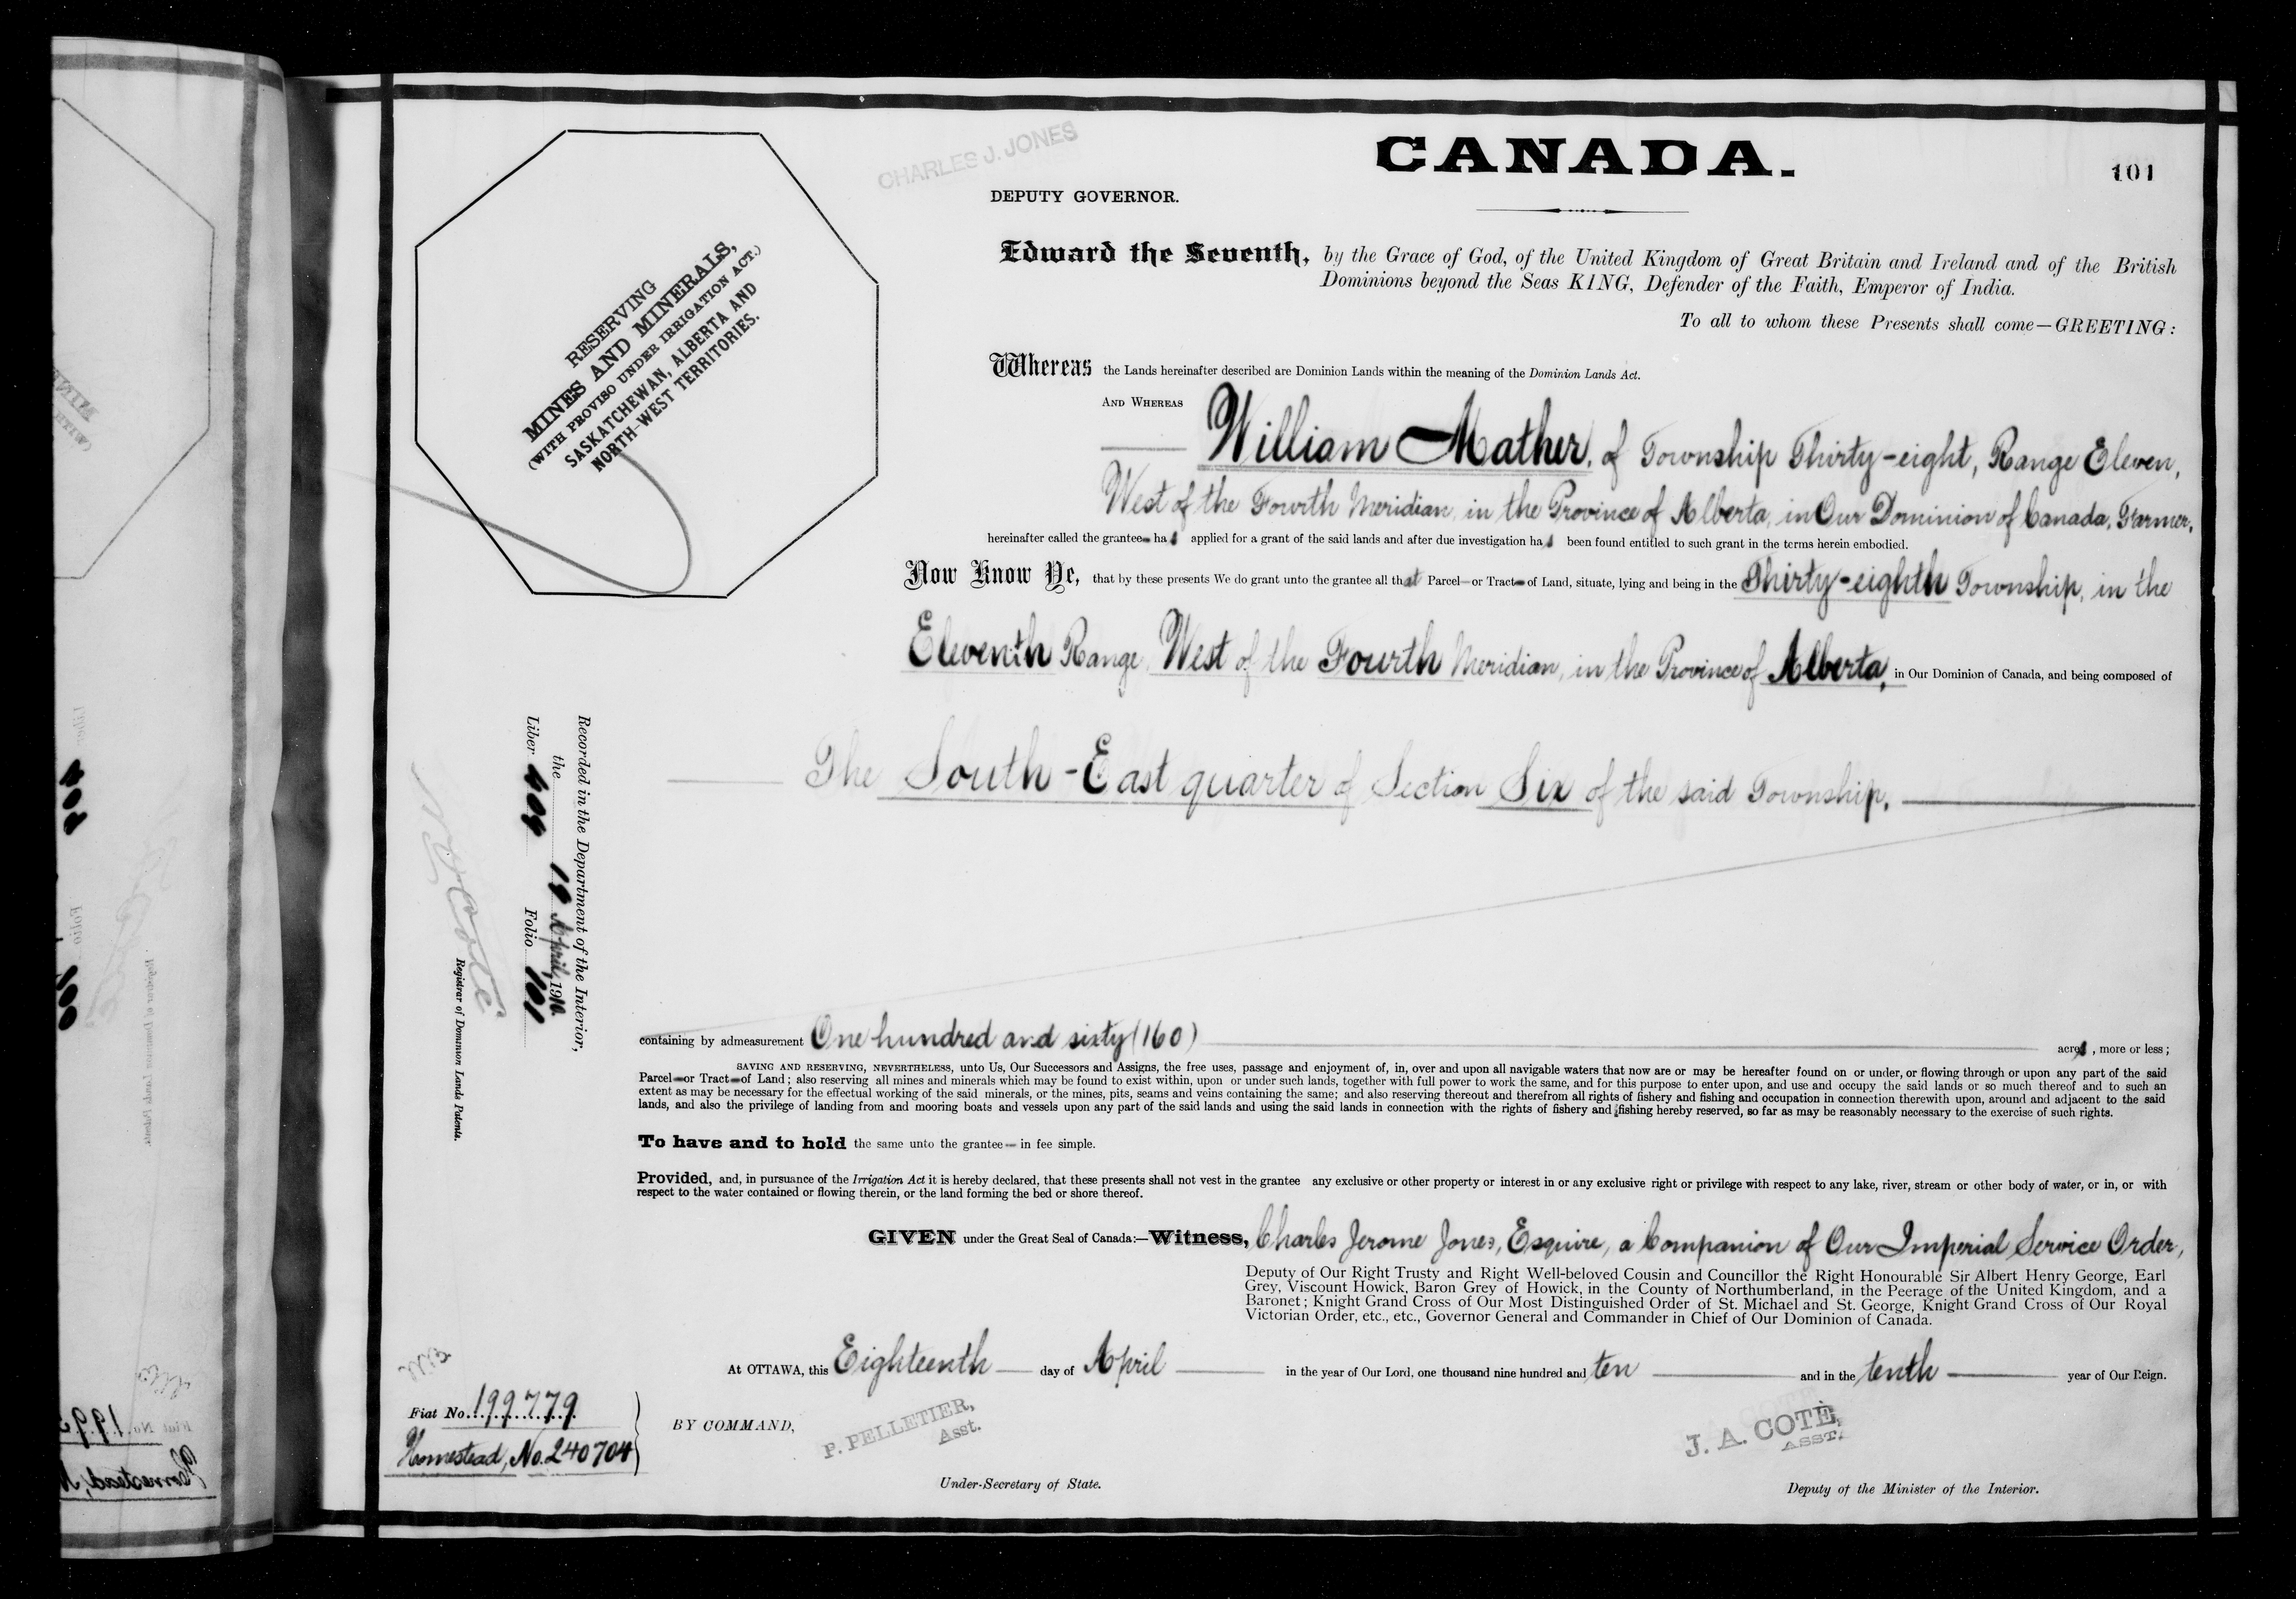 CANADA.
101
CHARLES J. JONES
DEPUTY GOVERNOR.
RESERVING
MINES AND MINERALS,
(WITH PROVISO UNDER IRRIGATION ACT.)
SASKATCHEWAN, ALBERTA AND
NORTH-WEST TERRITORIES.
Edward the Seventh, by the Grace of God, of the United Kingdom of Great Britain and Ireland and of the British
Dominions beyond the Seas KING, Defender of the Faith, Emperor of India.
To all to whom these Presents shall come—GREETING:
Whereas the Lands hereinafter described are Dominion Lands within the meaning of the Dominion Lands Act.
AND WHEREAS
William Mather, of Township Thirty-eight, Range Eleven,
West of the Fourth Meridian, in the Province of Alberta, in Our Dominion of Canada, Farmer,
hereinafter called the grantee has applied for a grant of the said lands and after due investigation has been found entitled to such grant in the terms herein embodied.
Now Know Ye, that by these presents We do grant unto the grantee all that Parcel or Tract of Land, situate, lying and being in the Thirty-eighth Township, in the
Eleventh Range, West of the Fourth Meridian, in the Province of Alberta, in Our Dominion of Canada, and being composed of
The South-East quarter of Section Six of the said Township,
Recorded in the Department of the Interior,
the 19 April, 1910.
Liber 409 Folio 101
N O Coté
Registrar of Dominion Lands Patents.
containing by admeasurement One hundred and sixty (160) acres, more or less;
SAVING AND RESERVING, NEVERTHELESS, unto Us, Our Successors and Assigns, the free uses, passage and enjoyment of, in, over and upon all navigable waters that now are or may be hereafter found on or under, or flowing through or upon any part of the said
Parcel or Tract of Land; also reserving all mines and minerals which may be found to exist within, upon or under such lands, together with full power to work the same, and for this purpose to enter upon, and use and occupy the said lands or so much thereof and to such an
extent as may be necessary for the effectual working of the said minerals, or the mines, pits, seams and veins containing the same; and also reserving thereout and therefrom all rights of fishery and fishing and occupation in connection therewith upon, around and adjacent to the said
lands, and also the privilege of landing from and mooring boats and vessels upon any part of the said lands and using the said lands in connection with the rights of fishery and fishing hereby reserved, so far as may be reasonably necessary to the exercise of such rights.
To have and to hold the same unto the grantee in fee simple.
Provided, and, in pursuance of the Irrigation Act it is hereby declared, that these presents shall not vest in the grantee any exclusive or other property or interest in or any exclusive right or privilege with respect to any lake, river, stream or other body of water, or in, or with
respect to the water contained or flowing therein, or the land forming the bed or shore thereof.
GIVEN under the Great Seal of Canada:—Witness, Charles Jerome Jones, Esquire, a Companion of Our Imperial Service Order,
Deputy of Our Right Trusty and Right Well-beloved Cousin and Councillor the Right Honourable Sir Albert Henry George, Earl
Grey, Viscount Howick, Baron Grey of Howick, in the County of Northumberland, in the Peerage of the United Kingdom, and a
Baronet; Knight Grand Cross of Our Most Distinguished Order of St. Michael and St. George, Knight Grand Cross of Our Royal
Victorian Order, etc., etc., Governor General and Commander in Chief of Our Dominion of Canada.
At OTTAWA, this Eighteenth day of April in the year of Our Lord, one thousand nine hundred and ten and in the tenth year of Our Reign.
Fiat No. 199779
Homestead, No. 240704
BY COMMAND,
P. PELLETIER,
Asst.
Under-Secretary of State.
J. A. COTÉ,
ASST.
Deputy of the Minister of the Interior.